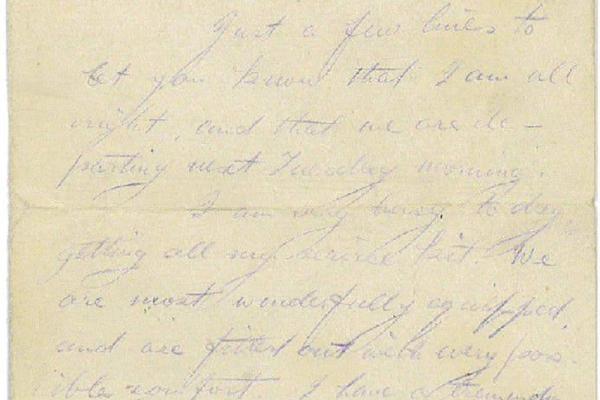 Just a few lines to
let you know that I am all
right, and that we are de-
parting next Tuesday morning.
I am very busy to day
getting all my service kit. We
are most wonderfully equipped
and are fitted out with every pos-
sible comfort. I have a tremend